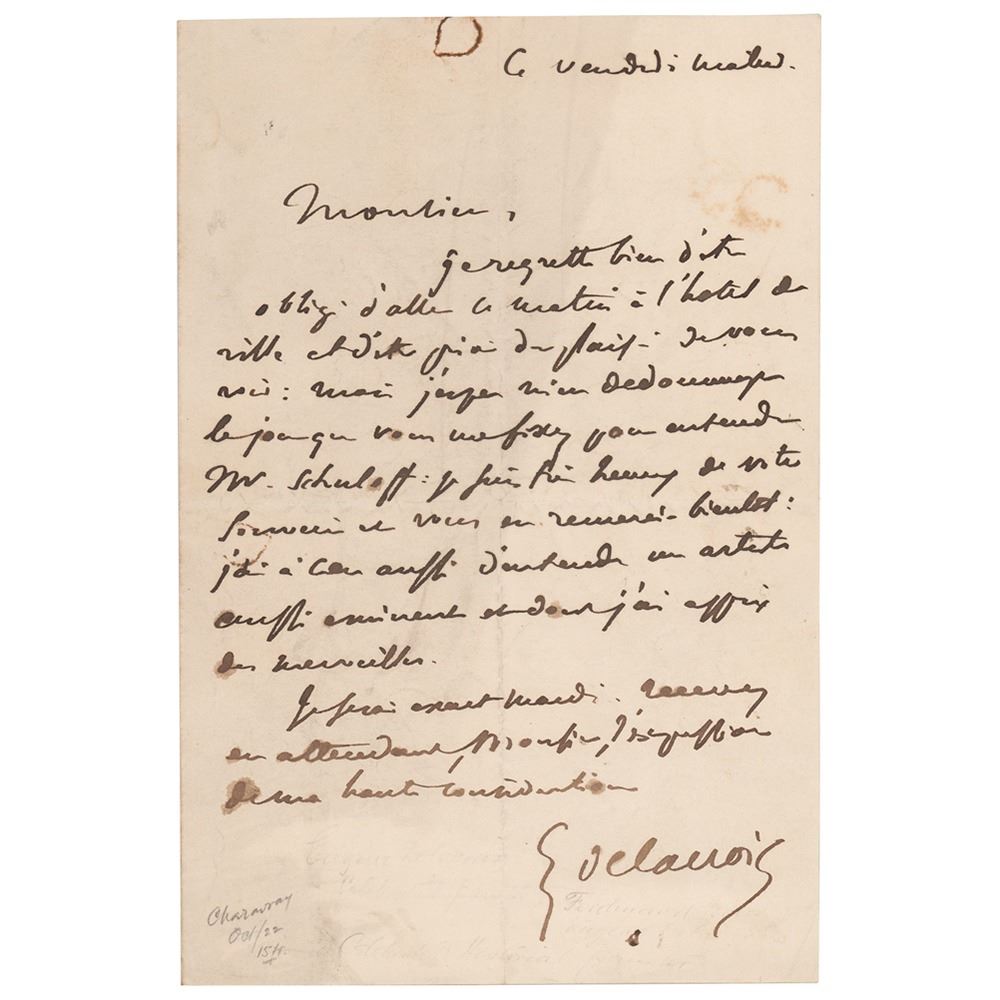 Ce vendredi matin.
Monsieur,
Je regrette bien d'être
obligé d'aller ce matin à l'hotel de
ville et d'être privé du plaisir de vous
voir: mais j'espère m'en dedommager
le jour que vous me fixez pour entendre
Mr. Schuloff: je suis très heureux de votre
souvenir et vous en remercie bientôt:
j'ai à coeur aussi d'entendre un artiste
aussi eminent et dont j'ai appris
des merveilles.
Je serai exact mardi. recevez
en attendant, Monsieur, l'expression
de ma haute consideration
E Delacroix
Charavay
Oct/22